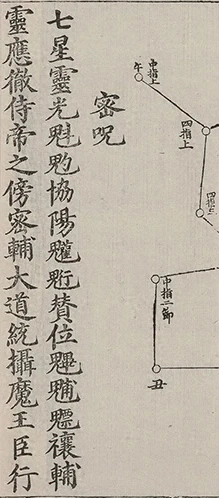 中指上
午
四指上
中指二節
丑
密咒
七星靈光魁𩲃協陽䰱䰢賛位魓𩳐魒禳輔
靈應徹侍帝之傍密輔大道統攝魔王臣行